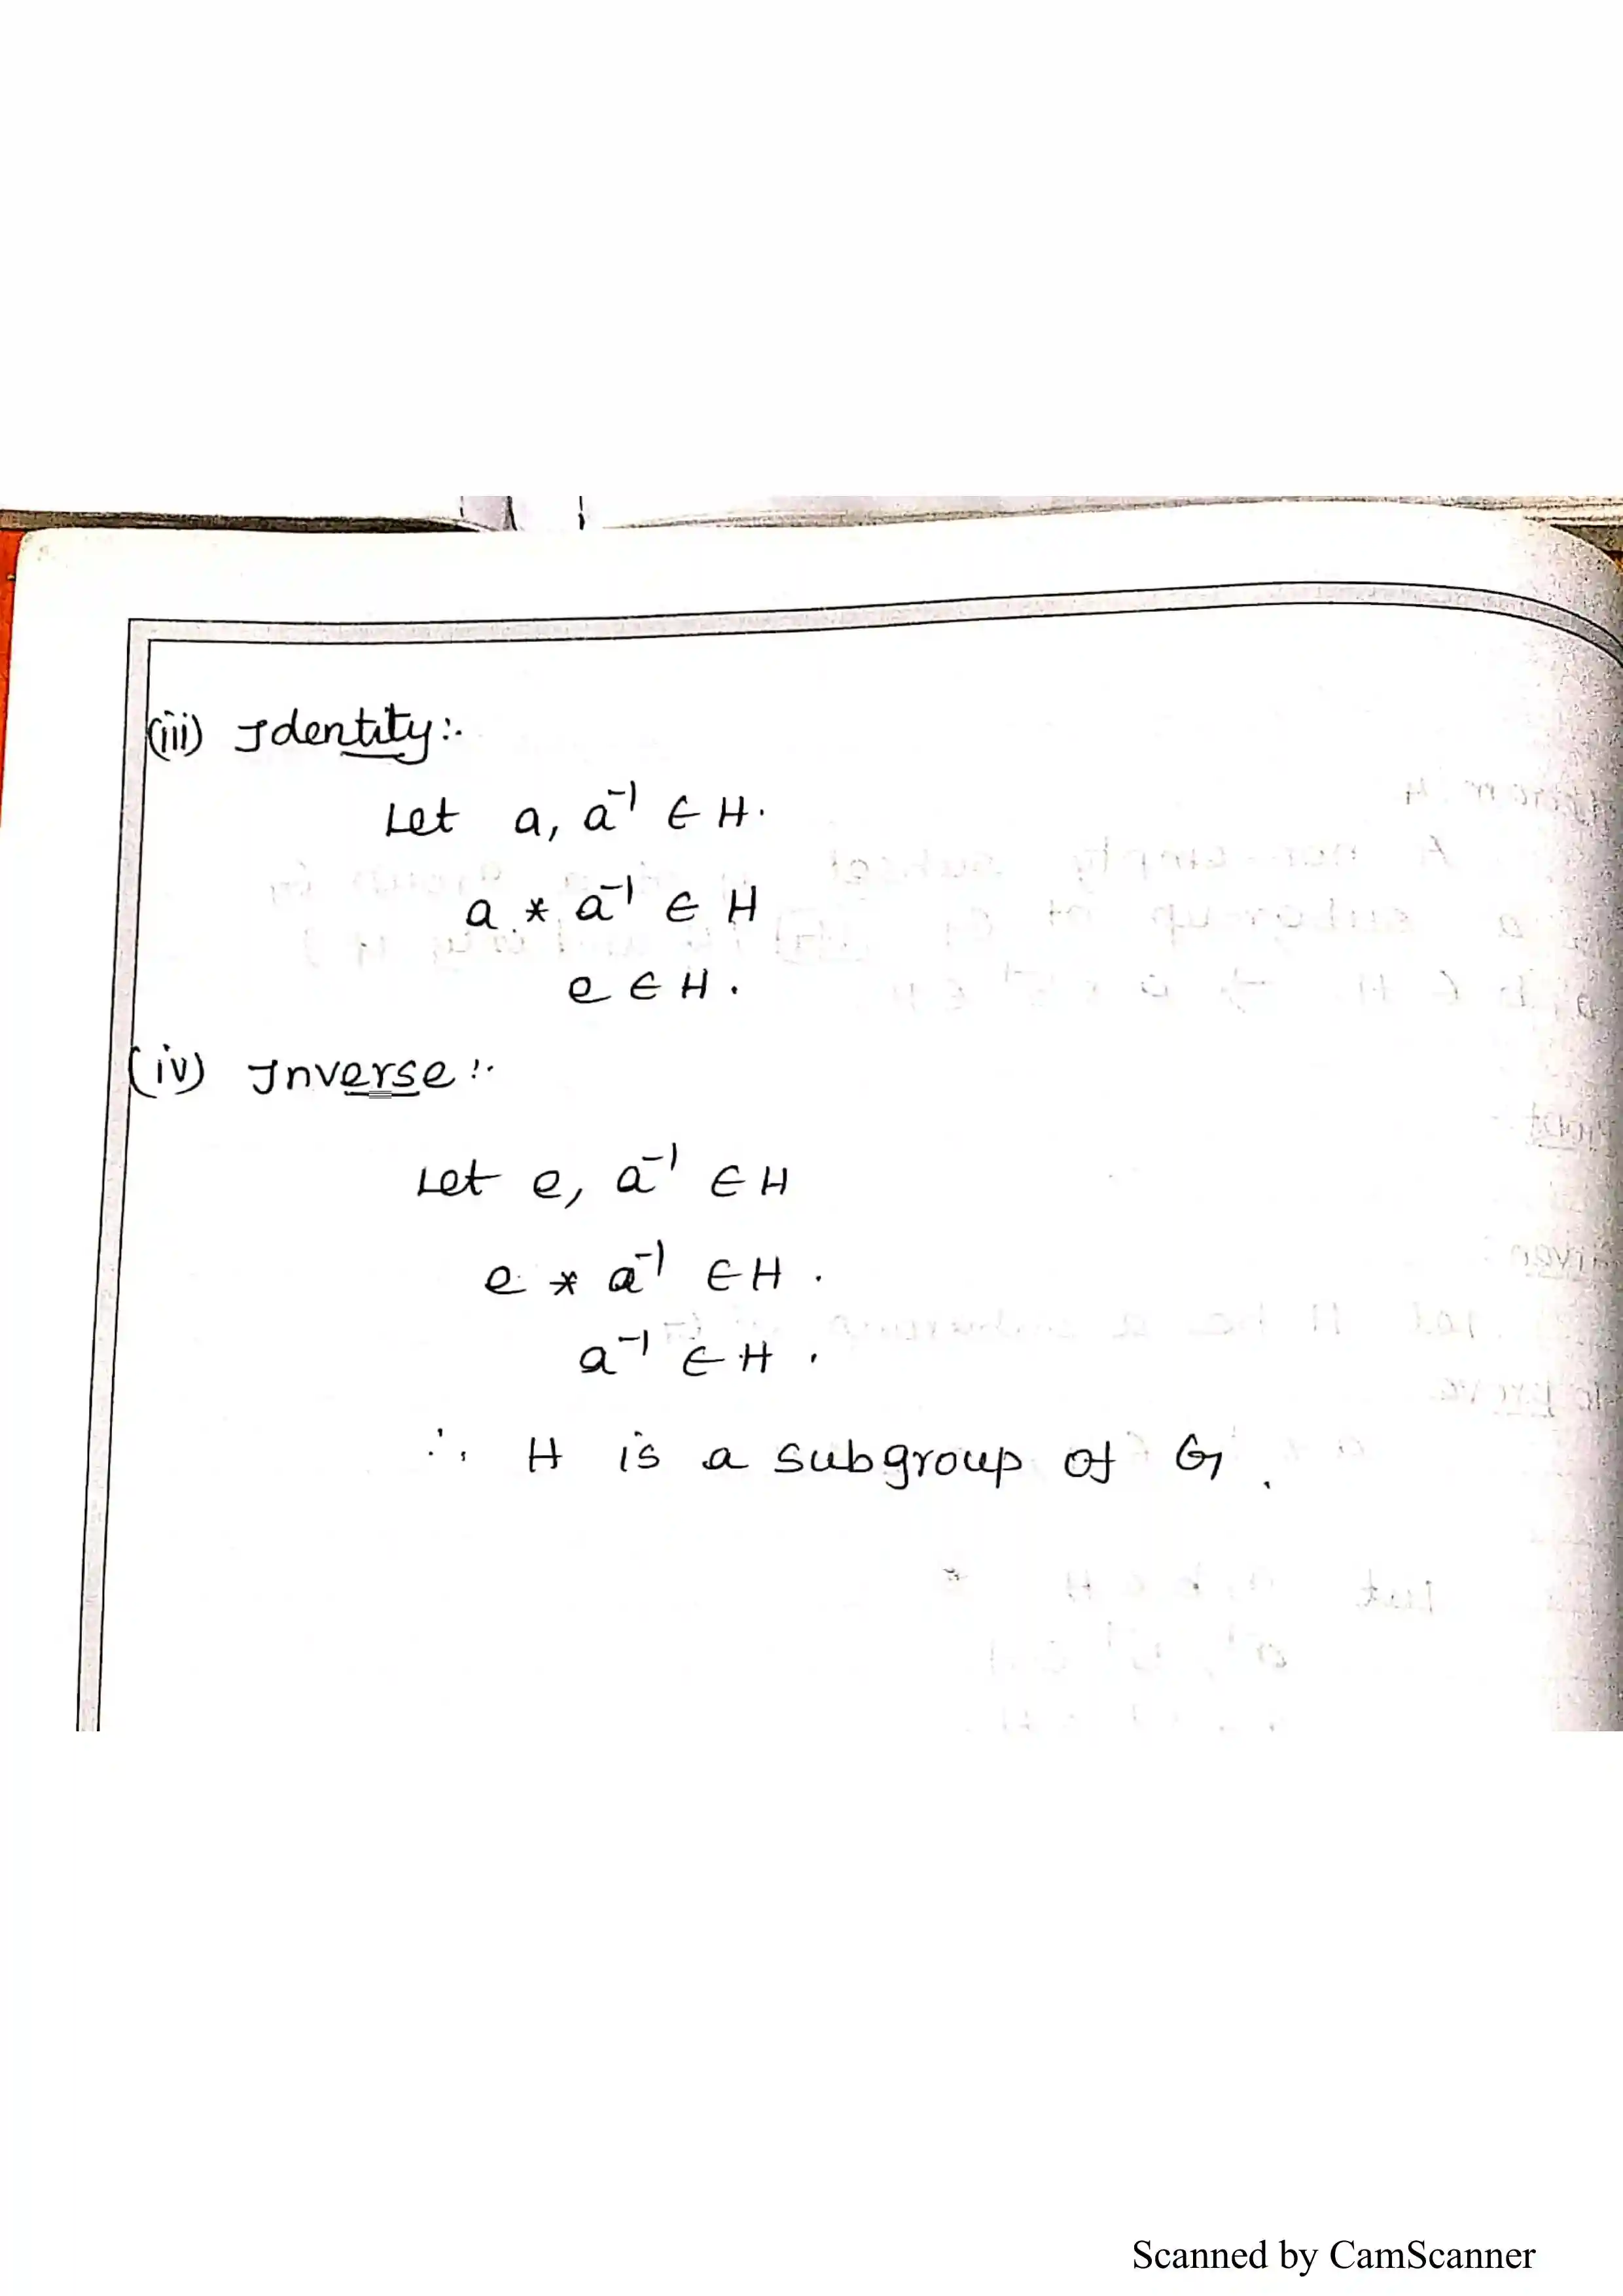 (iii) Identity:-
Let a, a⁻¹ ∈ H.
a * a⁻¹ ∈ H
e ∈ H.
(iv) Inverse:-
Let e, a⁻¹ ∈ H
e * a⁻¹ ∈ H.
a⁻¹ ∈ H.
∴ H is a subgroup of G.
Scanned by CamScanner